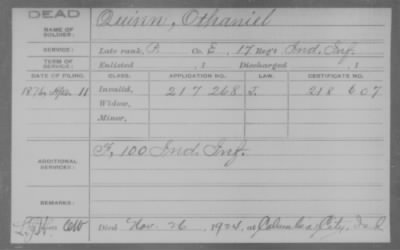 DEAD
NAME OF SOLDIER: Quinn, Othaniel
SERVICE: Late rank, P. Co. E, 17 Reg't Ind. Inf.
TERM OF SERVICE: Enlisted , 1 Discharged , 1
DATE OF FILING. CLASS. APPLICATION NO. LAW. CERTIFICATE NO.
1876, Apr 11 Invalid, 217 268 J. 218 607
Widow,
Minor,
ADDITIONAL SERVICES: F, 100 Ind. Inf.
REMARKS:
Died Nov. 26, 1924, at Columbia City, Ind